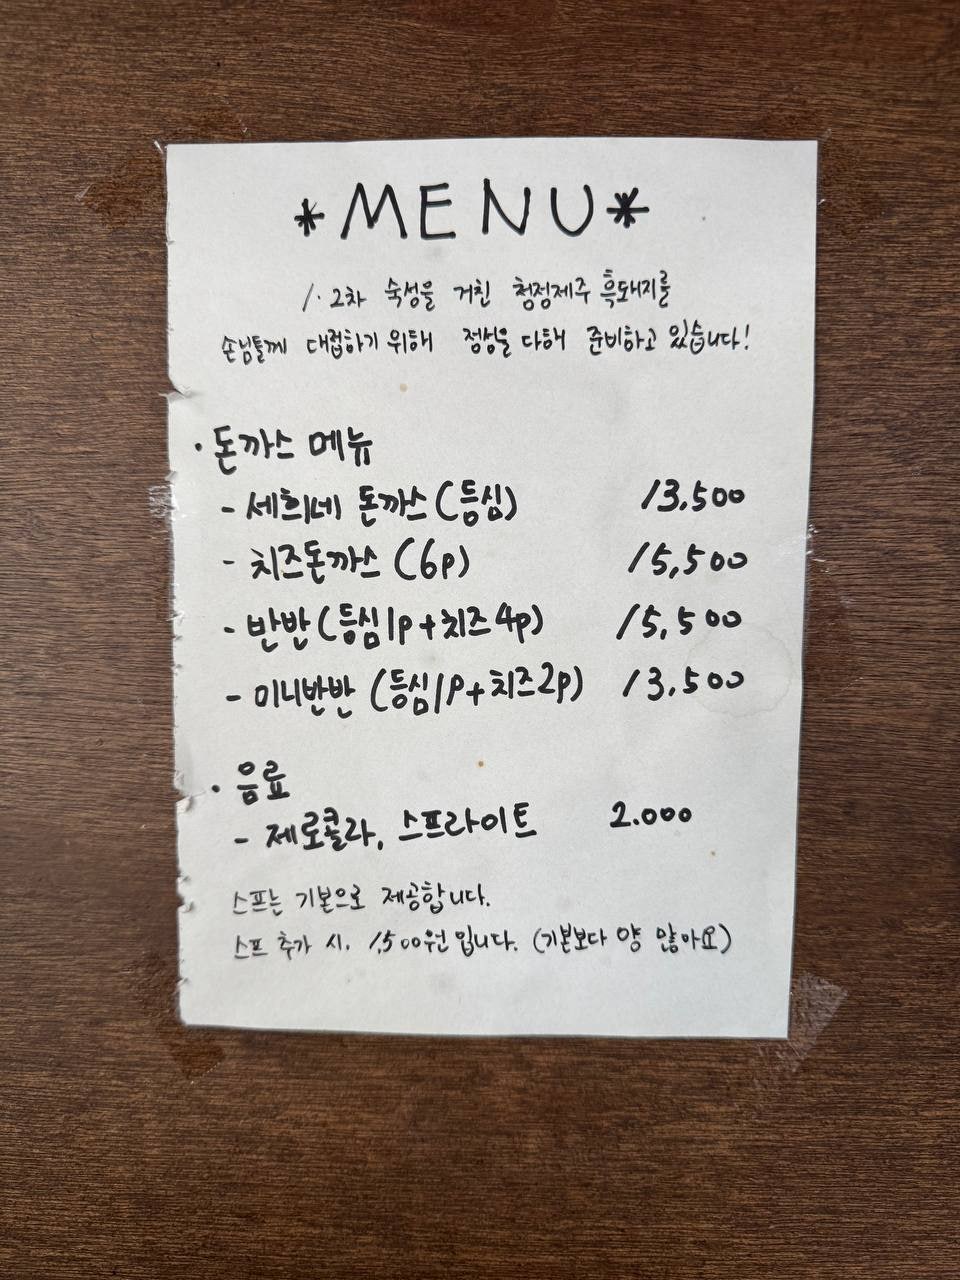 *MENU*
1·2차 숙성을 거친 청정제주 흑돼지를
손님들께 대접하기 위해 정성을 다해 준비하고 있습니다!
· 돈까스 메뉴
- 세희네 돈까스(등심) 13,500
- 치즈돈까스 (6p) 15,500
- 반반(등심1p+치즈4p) 15,500
- 미니반반 (등심1p+치즈2p) 13,500
· 음료
- 제로콜라, 스프라이트 2.000
스프는 기본으로 제공합니다.
스프 추가 시, 1,500원입니다. (기본보다 양 많아요)